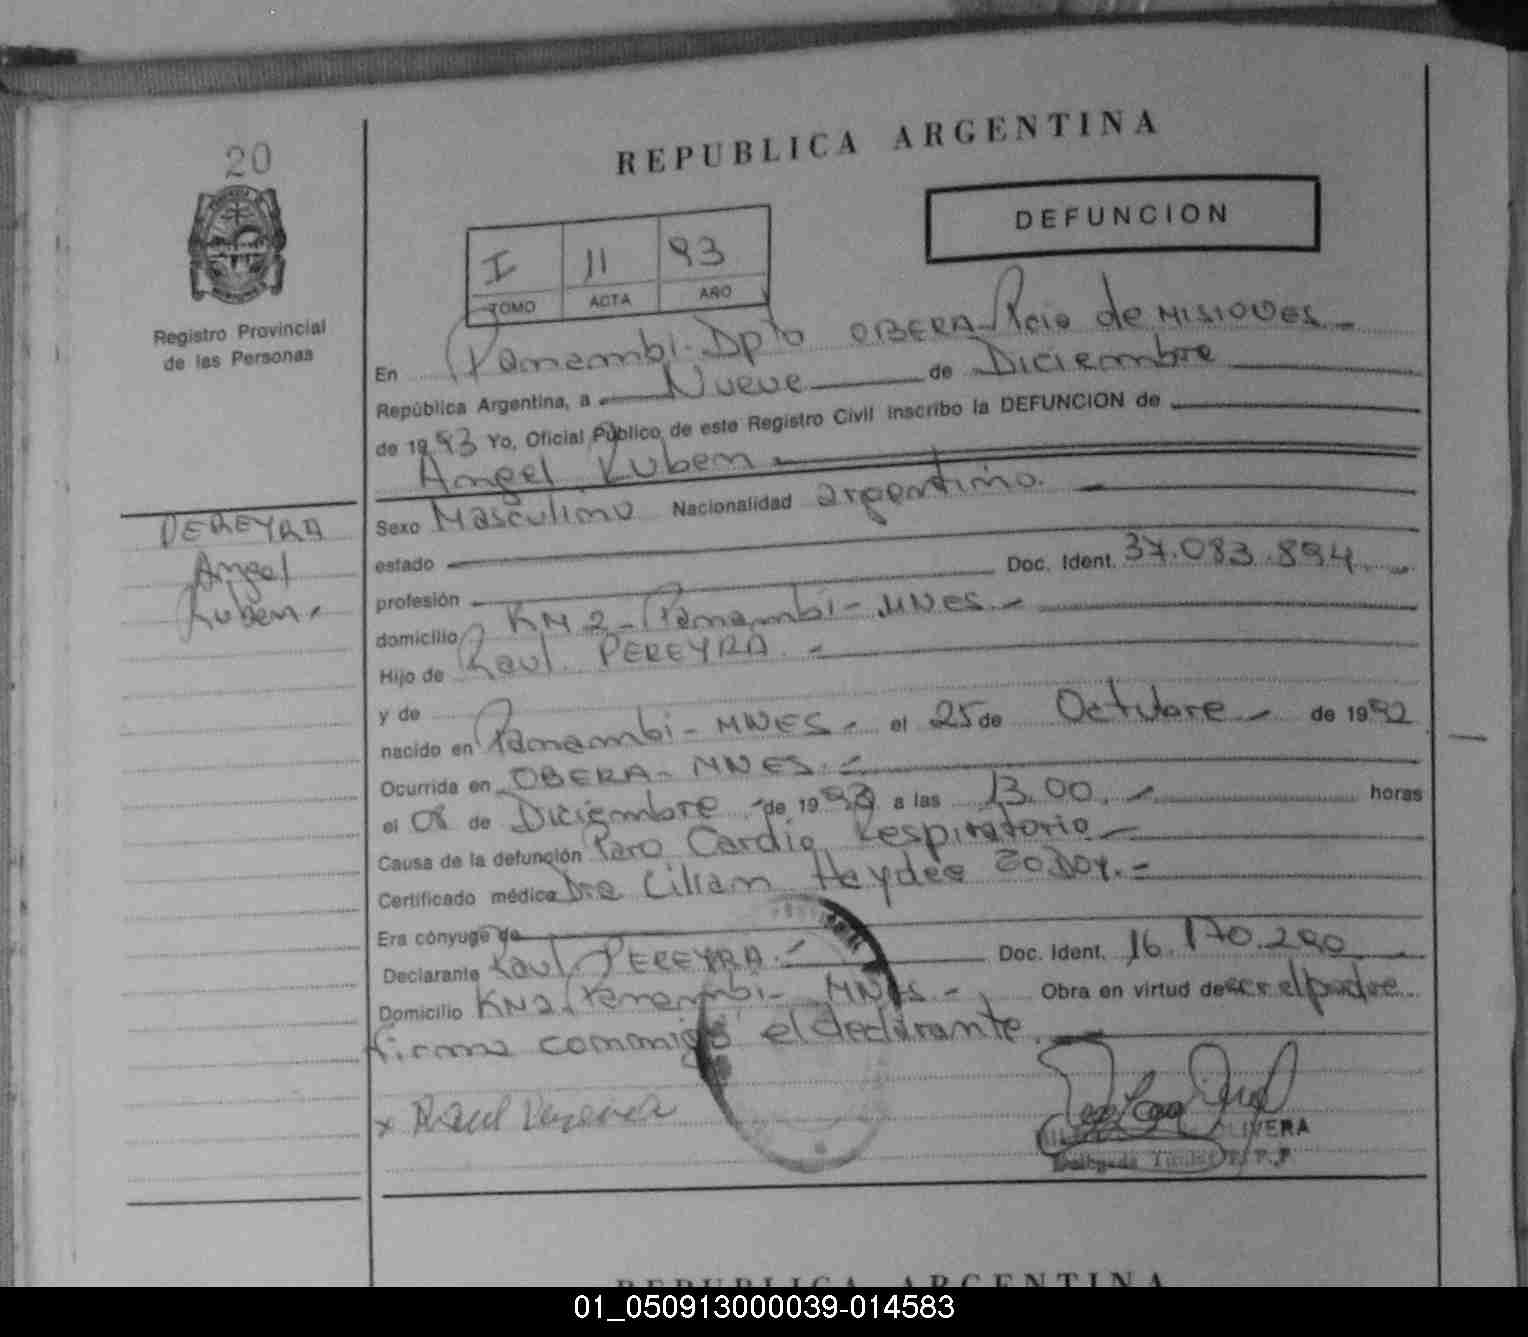 20
REPUBLICA ARGENTINA
DEFUNCION
I 11 93
TOMO ACTA AÑO
Registro Provincial
de las Personas
En Panambi - Dpto OBERA - Pcia de MISIONES -
República Argentina, a Nueve de Diciembre
de 1993 Yo, Oficial Público de este Registro Civil inscribo la DEFUNCION de
Angel Ruben
PEREYRA
Angel
Ruben
Sexo Masculino Nacionalidad argentino.
estado
profesión Doc. Ident. 37.083.894
domicilio KM 2 - Panambi - MNES -
Hijo de Raul PEREYRA . -
y de
nacido en Panambi - MNES - el 25 de Octubre - de 1992
Ocurrida en OBERA - MNES . -
el 08 de Diciembre - de 1993 a las 13.00 . - horas
Causa de la defunción Paro Cardio Respiratorio -
Certificado médico Dra Lilian Haydée GODOY . -
Era cónyuge de
Declarante Raul PEREYRA - Doc. Ident. 16.170.290
Domicilio KM 2 Panambi - MNES - Obra en virtud de ser el padre
firma conmigo el declarante
x Raul Pereyra
OLIVERA
REPUBLICA ARGENTINA
01_050913000039-014583